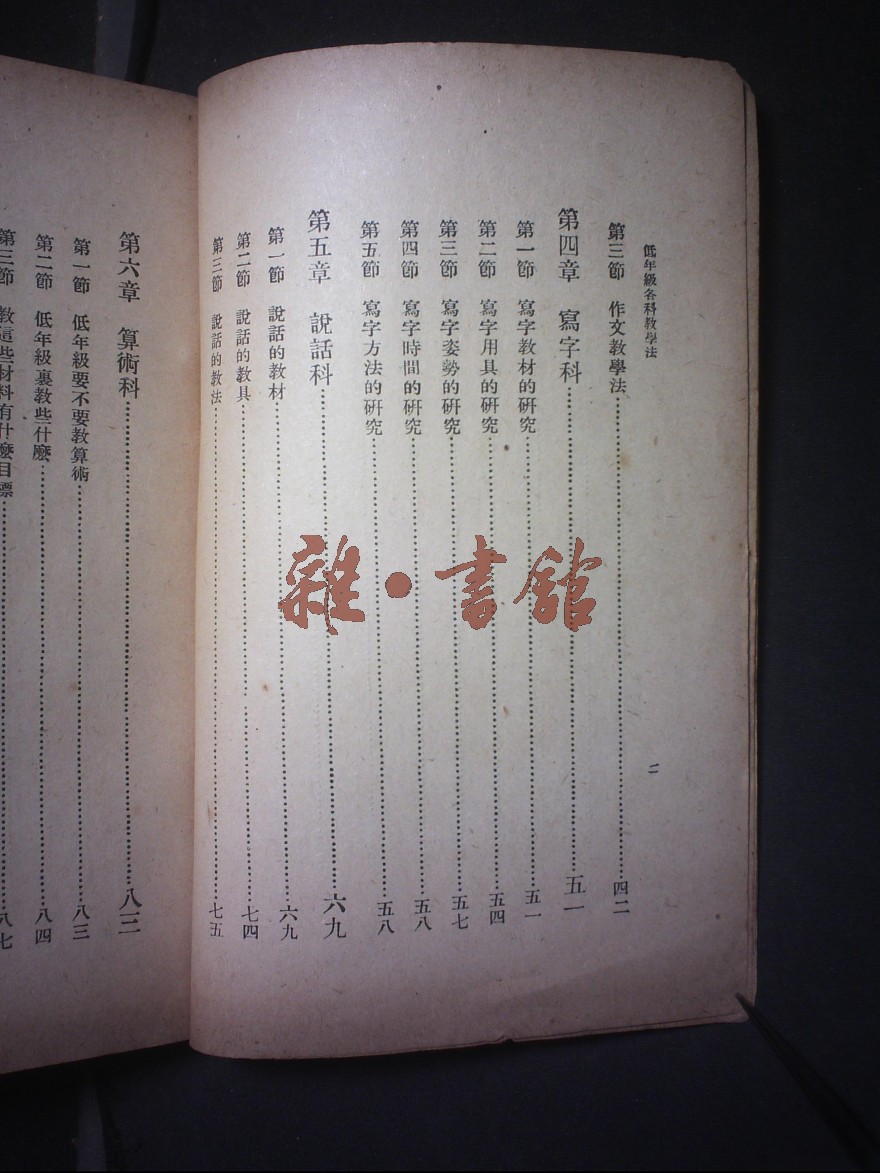 低年級各科教學法
二
第三節 作文教學法……四二
第四章 寫字科……五一
第一節 寫字教材的研究……五一
第二節 寫字用具的研究……五四
第三節 寫字姿勢的研究……五七
第四節 寫字時間的研究……五八
第五節 寫字方法的研究……五八
第五章 說話科……六九
第一節 說話的教材……六九
第二節 說話的教具……七四
第三節 說話的教法……七五
第六章 算術科……八三
第一節 低年級要不要教算術……八三
第二節 低年級裏教些什麼……八四
第三節 教這些材料有什麼目標……八七
雜·書館